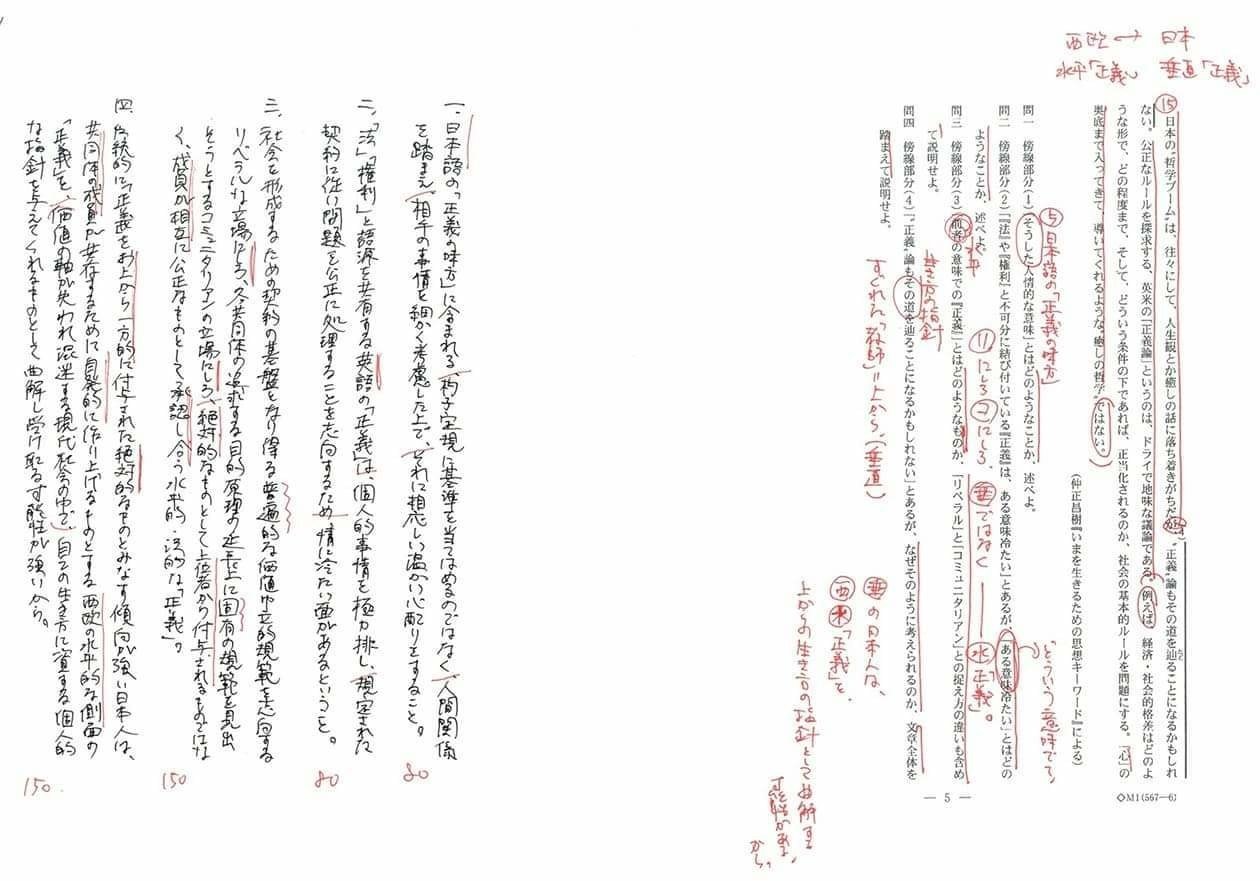 西欧 ↔ 日本
水平「正義」 垂直「正義」
⑮ 日本の“哲学ブーム”は、往々にして、人生観とか癒しの話に落ち着きがちだが、“正義”論もその道を辿ることになるかもしれ
ない。公正なルールを探求する、英米の「正義論」というのは、ドライで地味な議論である。例えば、経済・社会的格差はどのよ
うな形で、どの程度まで、そして、どういう条件の下であれば、正当化されるのか、社会の基本的ルールを問題にする。「心」の
奥底まで入ってきて、導いてくれるような、癒しの哲学ではない。
(仲正昌樹『いまを生きるための思想キーワード』による)
⑤ 日本語の「正義の味方」
どういう意味で?
問一 傍線部分(1)「そうした人情的な意味」とはどのようなことか、述べよ。
問二 傍線部分(2)「『法』や『権利』と不可分に結び付いている『正義』は、ある意味冷たい」とあるが、「ある意味冷たい」とはどの
ようなことか、述べよ。
水平
リにしろコにしろ、垂ではなく――水「正義」。
問三 傍線部分(3)「前者の意味での『正義』」とはどのようなものか、「リベラル」と「コミュニタリアン」との捉え方の違いも含め
て説明せよ。
生き方の指針
問四 傍線部分(4)「“正義”論もその道を辿ることになるかもしれない」とあるが、なぜそのように考えられるのか、文章全体を
踏まえて説明せよ。
すぐれた「教師」=上から、(垂直)
垂の日本人は、
西水「正義」を、
上からの生き方の指針として曲解する
可能性がある
から。
— 5 —
◇M1(567—6)
一、日本語の「正義の味方」に含まれる、杓子定規に基準を当てはめるのではなく、人間関係
を踏まえ、相手の事情を細かく考慮した上で、それに相応しい温かい心配りをすること。
80
二、「法」「権利」と語源を共有する英語の「正義」は、個人的事情を極力排し、規定された
契約に従い問題を公正に処理することを志向するため、情に冷たい面があるということ。
80
三、社会を形成するための契約の基盤となり得る普遍的な価値中立的規範を志向する
リベラルな立場にしろ、各共同体の追求する目的・原理の延長上に固有の規範を見出
そうとするコミュニタリアンの立場にしろ、絶対的なものとして上位者から付与されるものではな
く、成員が相互に公正なものとして承認し合う水平的・法的な「正義」。
150
四、伝統的に「正義」をお上から一方的に付与された絶対的なものとみなす傾向が強い日本人は、
共同体の成員が共存するために自発的に作り上げるものとする西欧の水平的な側面の
「正義」を、価値の軸が失われ混迷する現代社会の中で、自己の生き方に資する個人的
な指針を与えてくれるものとして曲解し受け取る可能性が強いから。
150